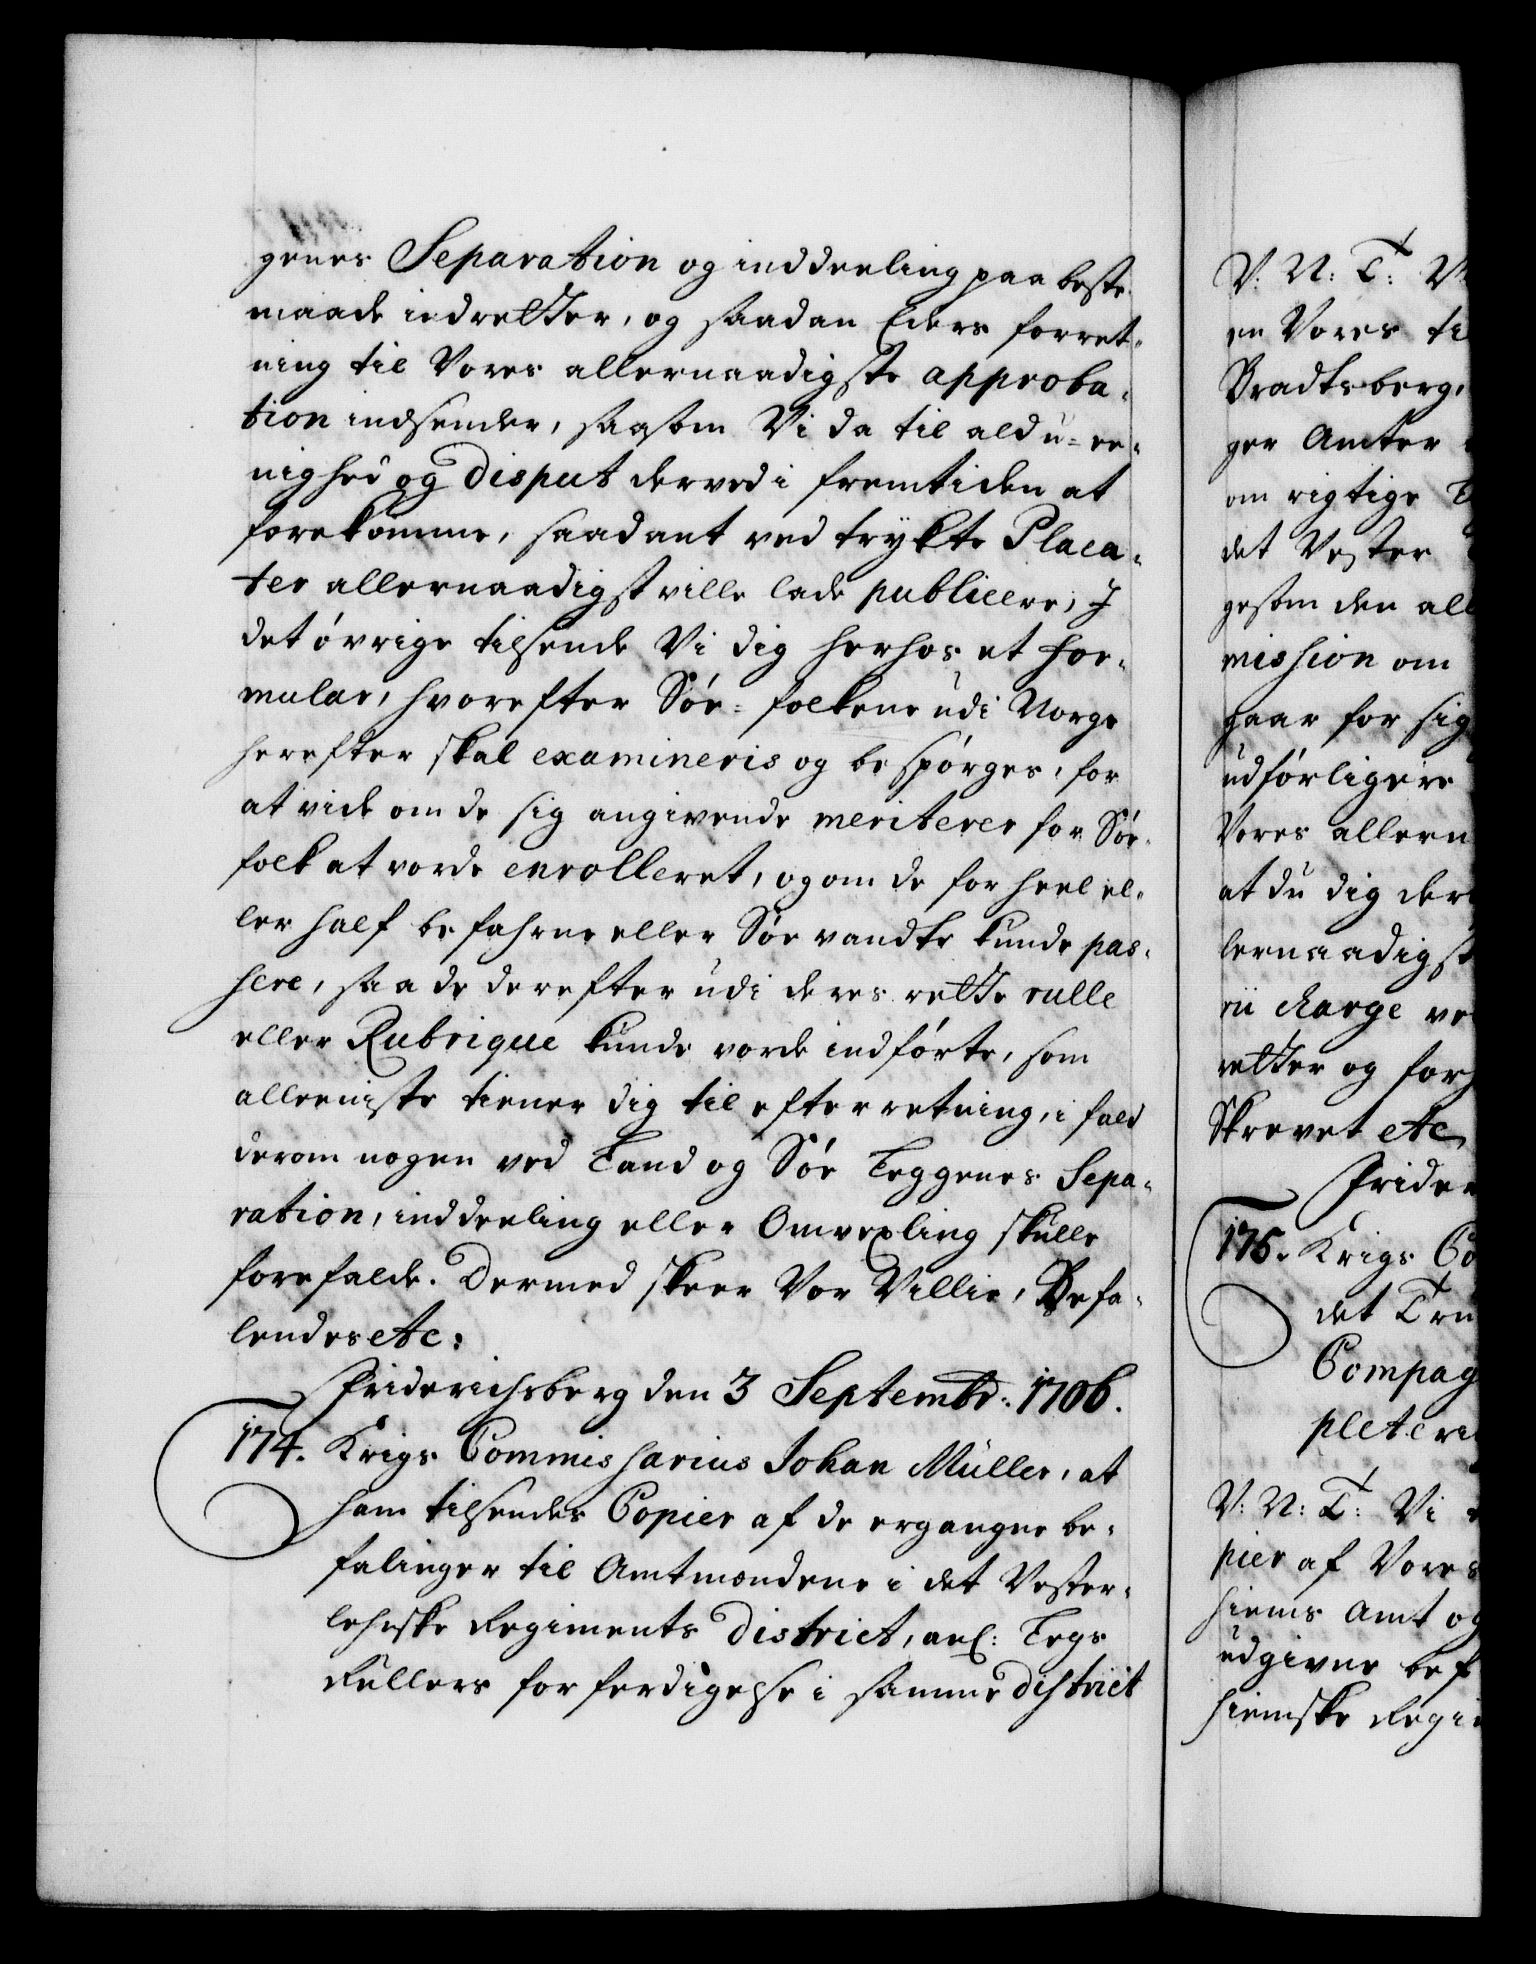 genes Separation og inddeeling paa beste
maade indretter, og saadan Eders forret-
ning til Vores allernaadigste approba-
tion indsender, saasom Vi da til ald u-ee-
nighed og Disput derved i fremtiden at
forekomme, saadant ved trykte Placa-
ter allernaadigst ville lade publicere, J
det øvrige tilsende Vi dig herhos et For-
mular, hvorefter Søe-folkene udi Norge
herefter skal examineris og bespørges, for
at vide om de sig angivende meriterer for Søe-
folk at vorde enrolleret, og om de for heel el-
ler half befahrne eller Søe vandte kunde pas-
sere, saa de derefter udi deres rette rulle
eller Rubrique kunde vorde indførte, som
alleeniste tiener dig til efterretning, i fald
derom nogen ved Land og Søe Leggenes Sepa-
ration, inddeeling eller Omvexling skulle
forefalde. Dermed skeer Vor Villie, Befa-
lendes etc:
Friderichsberg den 3 Septembr: 1706.
174. Krigs Commissarius Johan Müller, at
ham tilsendes Copier af de ergangne be-
falinger til Amtmændene i det Vester-
lehnske Regiments District, anl: Legs
Rullers forferdigelse i samme District
V: N: T: V
en Vores ti
Bradtsberg,
ger Amter
om rigtige
det Vester
gesom den all
mission om
gaar for sig
udførligere
Vores allern
at du dig der
lernaadigst
rii charge ve
retter og for
Skrevet etc
Frider
175. Krigs Co
det Tru
Compag
pleteri
V: N: T: Vi
pier af Vores
hiems Amt og
udgivne bef
hiemske Regi